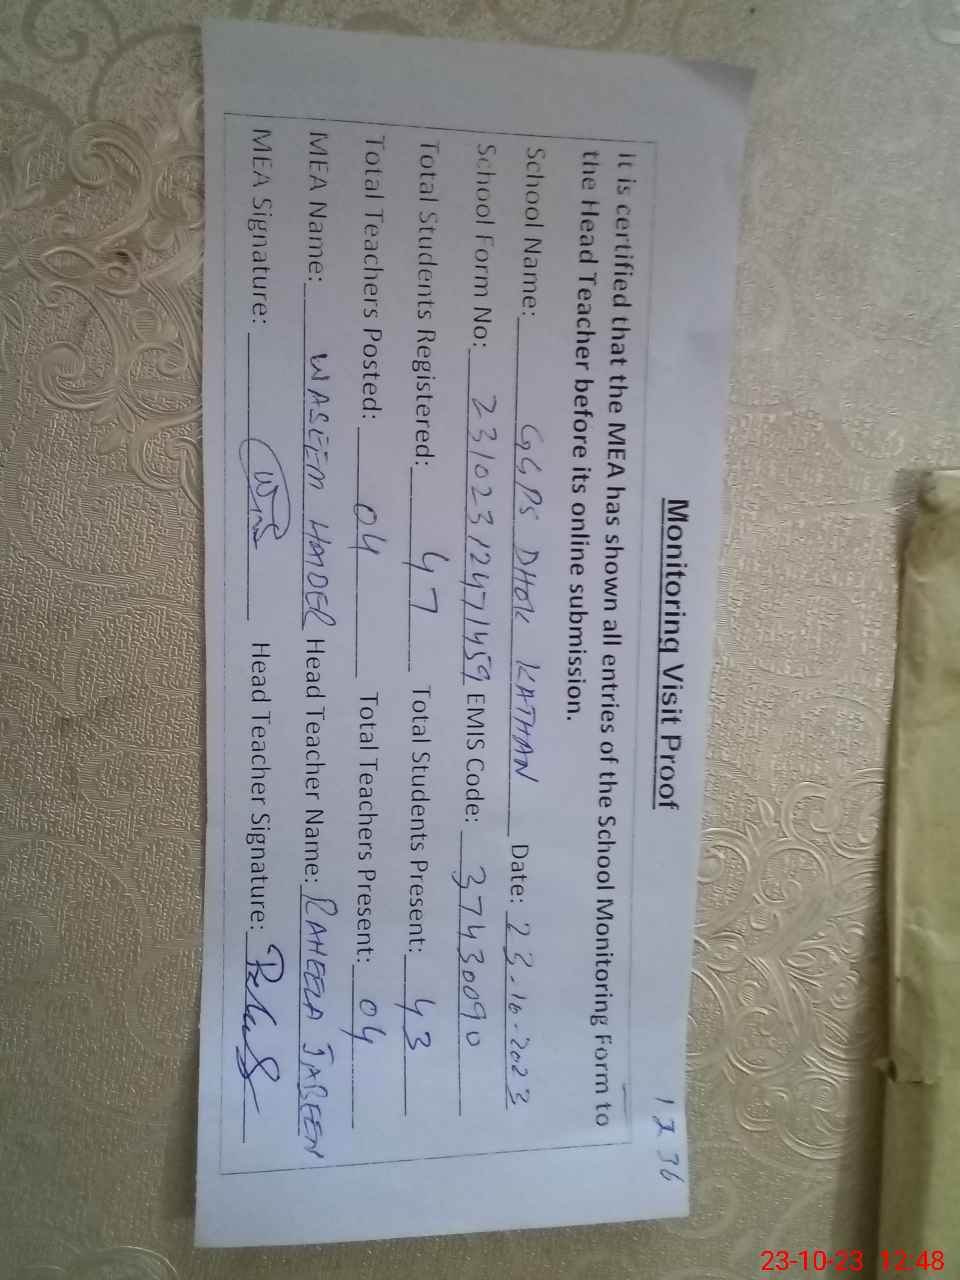 12 36
Monitoring Visit Proof
It is certified that the MEA has shown all entries of the School Monitoring Form to
the Head Teacher before its online submission.
School Name: GGPS DHOK KATHAN Date: 23.10.2023
School Form No: 23102312471459 EMIS Code: 37430090
Total Students Registered: 47 Total Students Present: 43
Total Teachers Posted: 04 Total Teachers Present: 04
MEA Name: WASEEM HAIDER Head Teacher Name: RAHEELA JABEEN
MEA Signature: Head Teacher Signature:
23-10-23 12:48